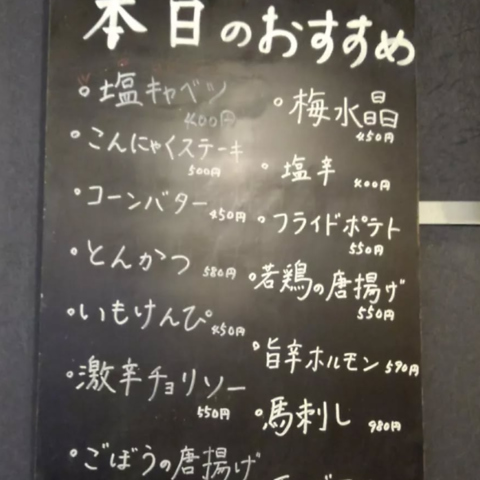 本日のおすすめ
塩キャベツ
400円
こんにゃくステーキ
500円
コーンバター 450円
とんかつ 580円
いもけんぴ 450円
激辛チョリソー
550円
ごぼうの唐揚げ
梅水晶
450円
塩辛 400円
フライドポテト
550円
若鶏の唐揚げ
550円
旨辛ホルモン 590円
馬刺し 980円